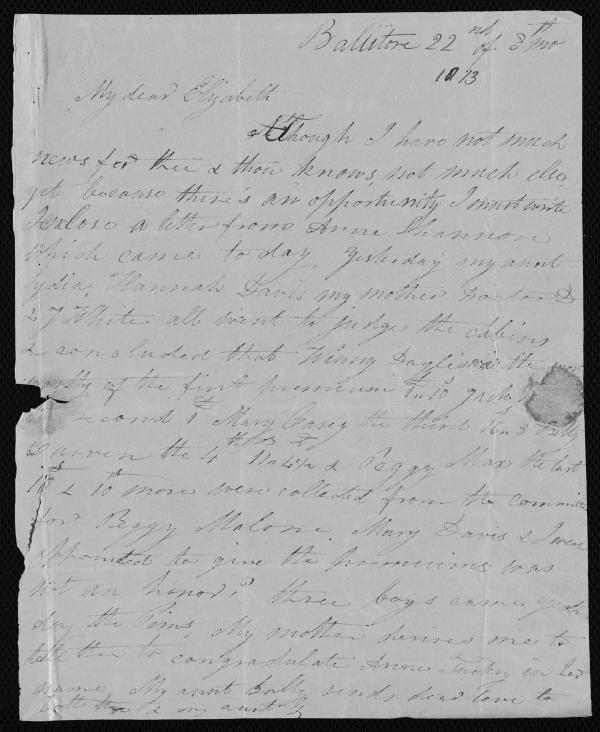 Ballitore 22nd of 3th mo
1873
My dear Elizabeth
Although I have not much
news for thee & thou knows not much else,
yet because there's an opportunity I must write
I enclose a letter from Anne Shannon
which came to day, yesterday my aunt
Lydia, Hannah Davis my mother Doctor D
& J White all went to judge the cabins
& concluded that Winny Doyles was the
of the first premium
second Mary Casey the third
the 4th & Peggy Max the last
& more were collected from the committee
for Peggy Malone. Mary Davis & I were
appointed to give the premiums was
not an honor? three boys came yester
day the Pims, My mother desires me to
tell thee to congradulate Anne in her
name My aunt sends dear love to
both thee & my aunt